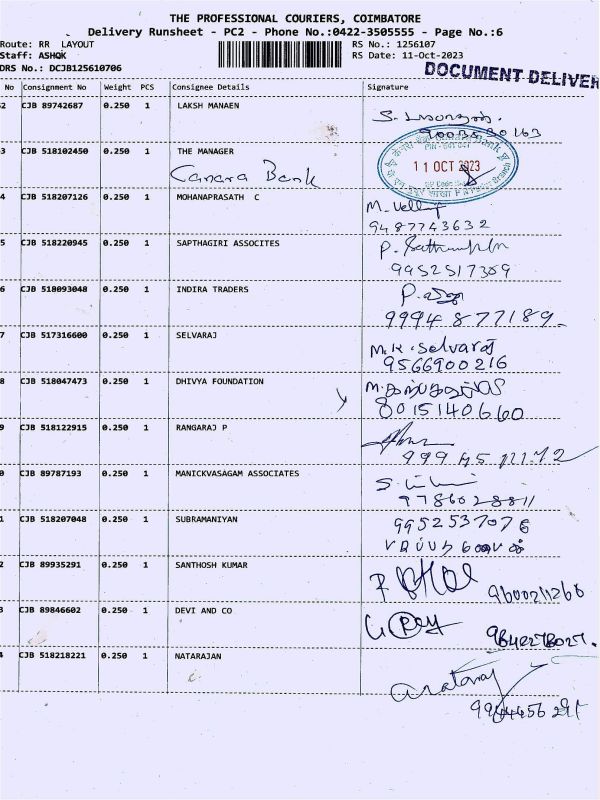 THE PROFESSIONAL COURIERS, COIMBATORE
Delivery Runsheet - PC2 - Phone No.:0422-3505555 - Page No.:6
Route: RR LAYOUT
RS No.: 1256107
Staff: ASHOK
RS Date: 11-Oct-2023
DRS No.: DCJB125610706
DOCUMENT DELIVER
No Consignment No Weight PCS Consignee Details Signature
2 CJB 89742687 0.250 1 LAKSH MANAEN
3 CJB 518102450 0.250 1 THE MANAGER
Canara Bank
11 OCT 2023
4 CJB 518207126 0.250 1 MOHANAPRASATH C
9487743632
5 CJB 518220945 0.250 1 SAPTHAGIRI ASSOCITES
9952517309
6 CJB 518093048 0.250 1 INDIRA TRADERS
9994877189
7 CJB 517316600 0.250 1 SELVARAJ
M.K. Selvaraj
9566900216
8 CJB 518047473 0.250 1 DHIVYA FOUNDATION
8015140660
9 CJB 518122915 0.250 1 RANGARAJ P
0 CJB 89787193 0.250 1 MANICKVASAGAM ASSOCIATES
9786028811
1 CJB 518207048 0.250 1 SUBRAMANIYAN
9952537076
2 CJB 89935291 0.250 1 SANTHOSH KUMAR
9600211266
3 CJB 89846602 0.250 1 DEVI AND CO
4 CJB 518218221 0.250 1 NATARAJAN